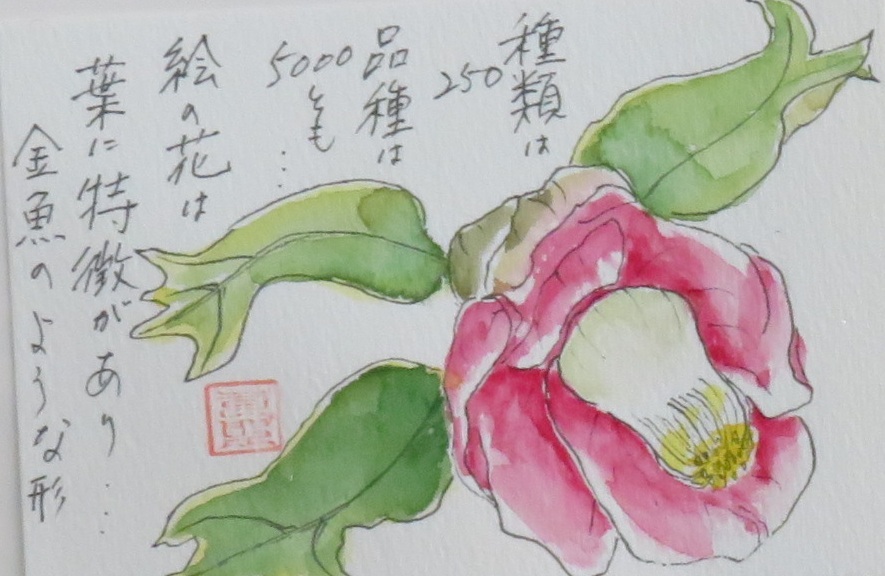 種類は
250
品種は
5000とも…
絵の花は
葉に特徴があり…
金魚のような形